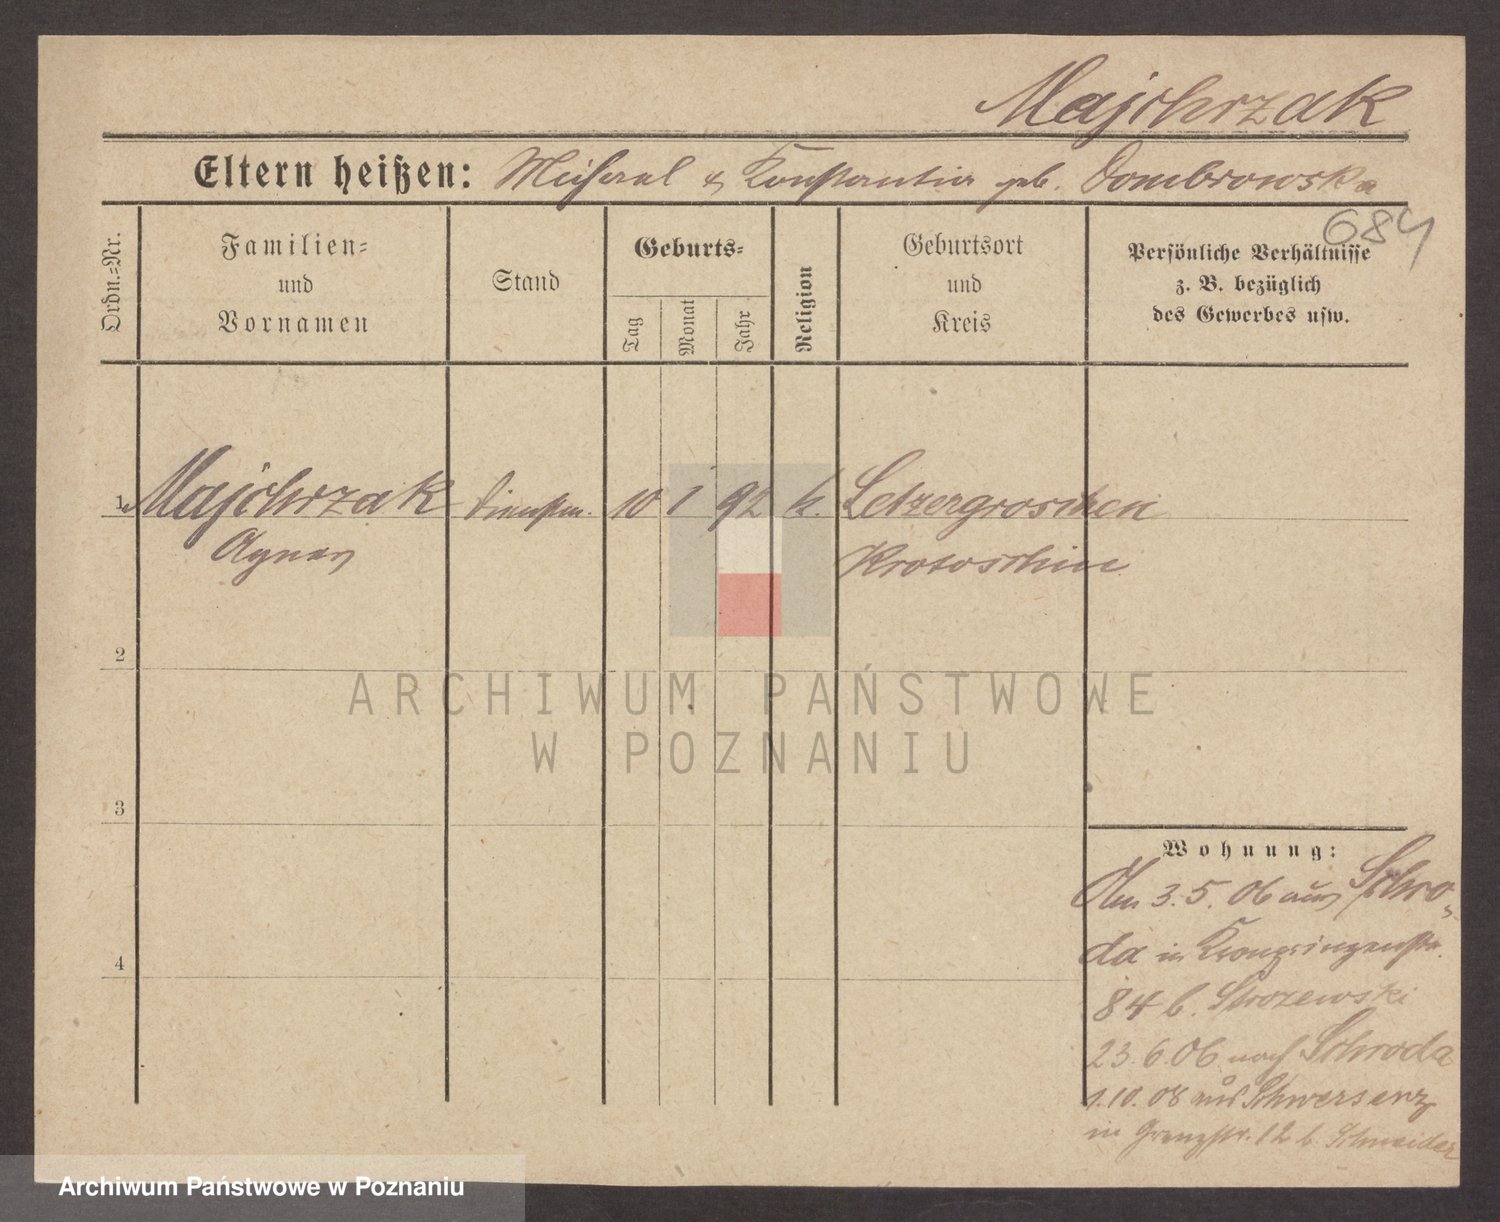 Majchrzak
Eltern heißen: Michael & Konstantia geb. Dombrowska
684
Ordn.=Nr.
Familien=
und
Vornamen
Stand
Geburts=
Tag
Monat
Jahr
Religion
Geburtsort
und
Kreis
Persönliche Verhältnisse
z. B. bezüglich
des Gewerbes usw.
1 Majchrzak Dienstm. 10 1 92 k. Letzergroschen
Agnes Krotoschin
2
3
4
ARCHIWUM PAŃSTWOWE
W POZNANIU
Wohnung:
Am 3.5.06 aus Schro-
da in Kronprinzenstr.
84 b. Strozewski
23.6.06 nach Schroda
1.10.08 aus Schwersenz
in Grenzstr. 12 b. Schneider
Archiwum Państwowe w Poznaniu